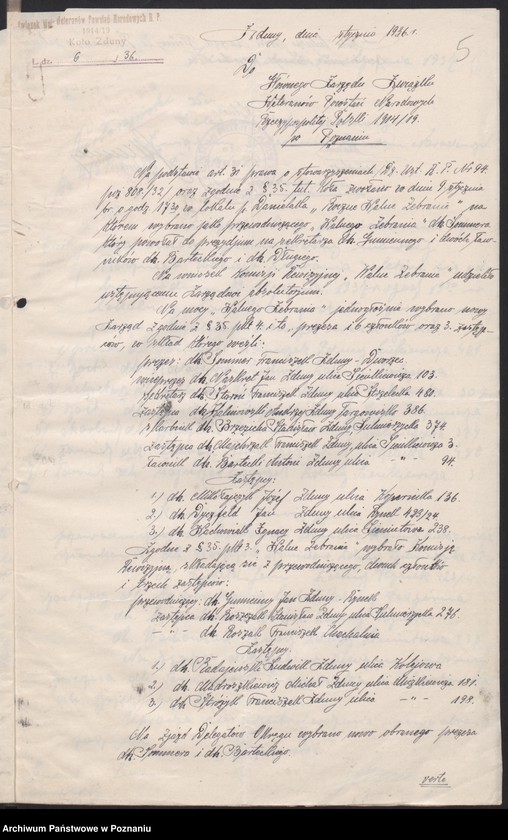 Związek Wet. Uczestników Powstań Narodowych R. P.
1914/19
Koło Zduny
L.dz. 6 / 36.
Zduny, dnia stycznia 1936 r.
5
Do
Głównego Zarządu Związku
Weteranów Powstań Narodowych
Rzeczypospolitej Polskiej 1914/19.
w Poznaniu
Na podstawie art. 31 prawa o stowarzyszeniach /Dz. Ust. R. P. Nr 94.
poz 800/32/ oraz zgodnie z § 35. stat. Koła zwołano w dniu 9 stycznia
br o godz. 17 30 w lokalu p. Danielaka „Roczne Walne Zebranie" na
którem wybrano jako przewodniczącego „Walnego Zebrania" dh. Sommera
który powołał do prezydjum na sekretarza dh. Gumennego i dwóch ław-
ników dh. Barteckiego i dh.
Na wniosek Komisji Rewizyjnej „Walne Zebranie" udzieliło
ustępującemu Zarządowi absolutorjum.
Na mocy „Walnego Zebrania" jednogłośnie wybrano nowy
Zarząd zgodnie z § 35 pkt 4. prezesa i 6 członków oraz 3. zastęp-
ców, w skład którego weszli:
prezes: dh. Sommer Franciszek Zduny - Dworzec
wiceprezes dh. Jan Zduny ulica Sienkiewicza 103.
sekretarz dh. Franciszek Zduny ulica Strzelecka 480.
zastępca dh. Andrzej Zduny Targowisko 386.
skarbnik dh. Brzezicha Stanisław Zduny Sulmierzycka 374.
zastępca dh. Franciszek Zduny, ulica Sienkiewicza 3.
ławnik dh. Bartecki Antoni Zduny ulica - " - 94.
Zastępcy:
1) dh. Mikołajczyk Józef Zduny ulica Kopernika 136.
2) dh. Jan Zduny ulica Rynek 423/24
3) dh. Ignacy Zduny ulica 238.
Zgodnie z § 35. pkt 3. „Walne Zebranie" wybrało Komisję
Rewizyjną, składającą się z przewodniczącego, dwóch członków
i trzech zastępców:
przewodniczący: dh. Gumenny Jan Zduny - Rynek
zastępca dh. Stanisław Zduny ulica Sulmierzycka 276.
- " - dh. Roszak Franciszek
Zastępcy:
1) dh. Ludwik Zduny ulica Kolejowa
2) dh. Michał Zduny ulica 181.
3) dh. Franciszek Zduny ulica - " - 194.
Na zjazd Delegatów Okręgu wybrano nowo obranego prezesa
dh. Sommera i dh. Barteckiego.
verte
Archiwum Państwowe w Poznaniu